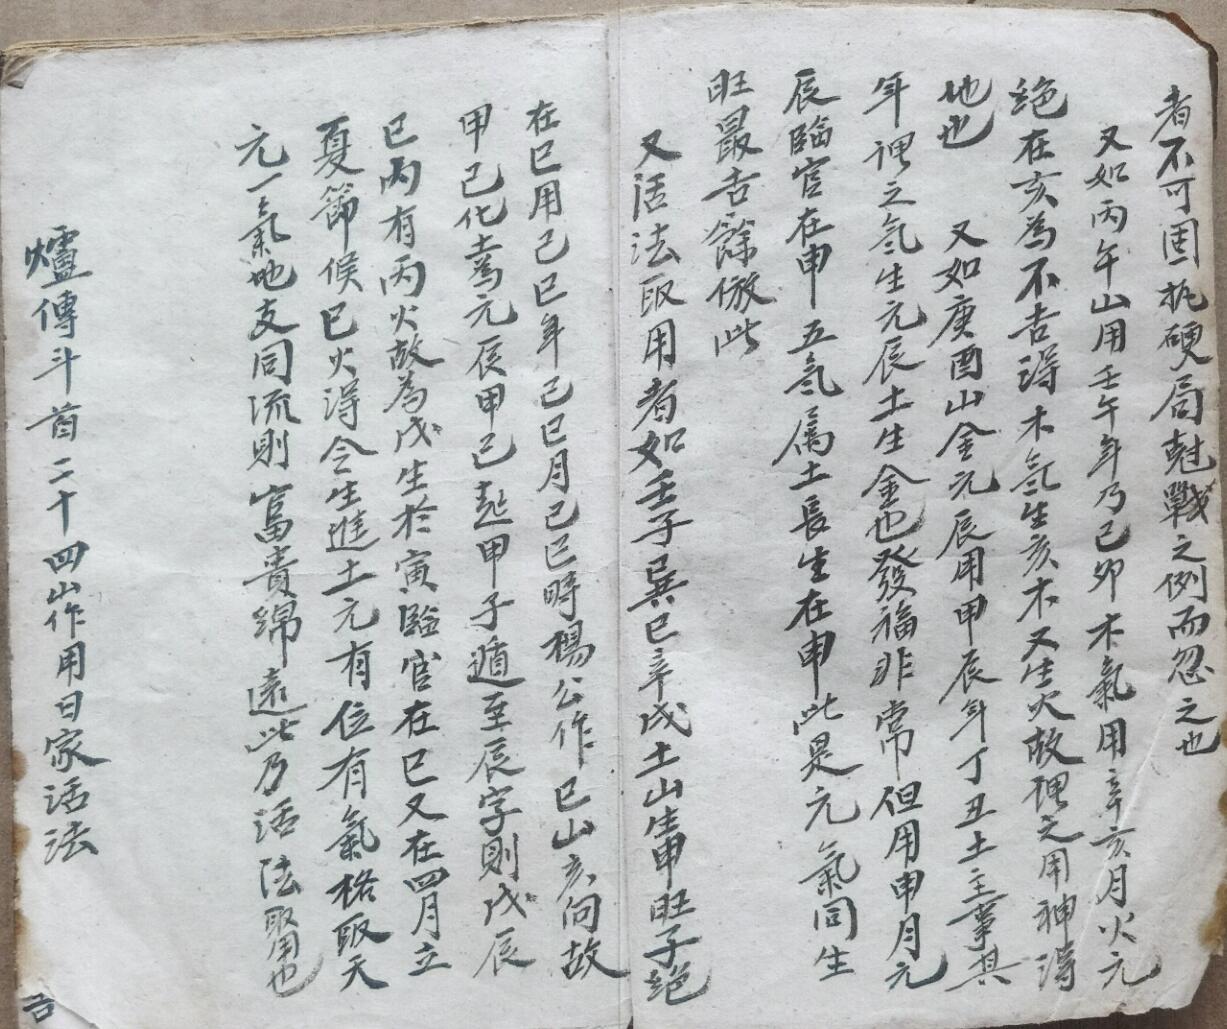 者不可固执硬局尅戰之例而忽之也
又如丙午山用壬午年乃己卯木氣用辛亥月火元
绝在亥為不吉得木氣生亥木又生火故理之用神得
地也　又如庚酉山金元辰用甲辰年丁丑土主事其
年理之氣生元辰土生金也發福非常但用申月元
辰臨官在申五氣属土長生在申此是元氣同生
旺最吉餘倣此
又活法取用者如壬子巽巳辛戌土山生申旺子绝
在巳用己巳年己巳月己巳時楊公作巳山亥向故
甲己化土為元辰甲己起甲子遁至辰字則戊辰
巳丙有丙火故為戊生於寅臨官在巳又在四月立
夏節候巳火得令生進土元有位有氣格取天
元一氣地支同流則富貴綿遠此乃活法取用也
爐傳斗首二十四山作用日家活法